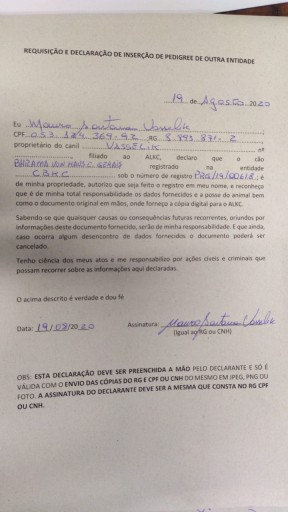 REQUISIÇÃO E DECLARAÇÃO DE INSERÇÃO DE PEDIGREE DE OUTRA ENTIDADE
19 de Agosto 2020
Eu Mauro Santana Vasselik
CPF 053.184.369-92 RG 8.993.891-2
proprietário do canil VASSELIK nº
filiado ao ALKC, declaro que o cão
registrado na entidade
CBKC sob o número de registro PRS/19/00618, é
de minha propriedade, autorizo que seja feito o registro em meu nome, e reconheço
que é de minha total responsabilidade os dados fornecidos e a posse do animal bem
como o documento original em mãos, onde forneço a cópia digital para o ALKC.
Sabendo-se que quaisquer causas ou consequências futuras recorrentes, oriundos por
informações deste documento fornecido, serão de minha responsabilidade. E que ainda,
caso ocorra algum desencontro de dados fornecidos o documento poderá ser
cancelado.
Tenho ciência dos meus atos e me responsabilizo por ações cíveis e criminais que
possam recorrer sobre as informações aqui declaradas.
O acima descrito é verdade e dou fé
Data: 19/08/2020 Assinatura: Mauro Santana Vasselik
(Igual ao RG ou CNH)
OBS: ESTA DECLARAÇÃO DEVE SER PREENCHIDA A MÃO PELO DECLARANTE E SÓ É
VÁLIDA COM O ENVIO DAS CÓPIAS DO RG E CPF OU CNH DO MESMO EM JPEG, PNG OU
FOTO. A ASSINATURA DO DECLARANTE DEVE SER A MESMA QUE CONSTA NO RG CPF
OU CNH.